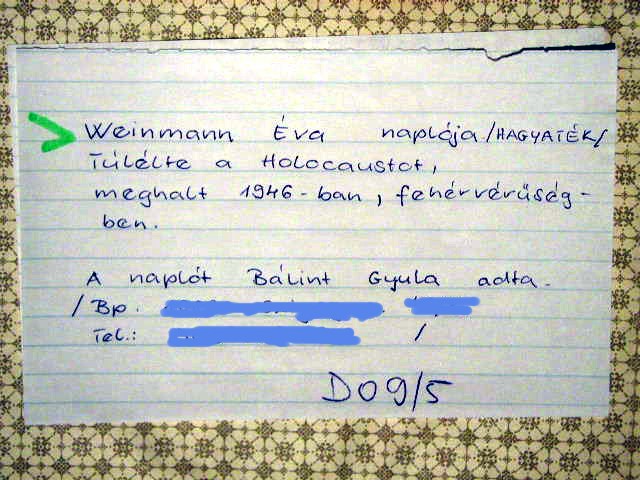 Weinmann Éva naplója /HAGYATÉK/
Túlélte a Holocaustot,
meghalt 1946-ban, fehérvérűség-
ben.
A naplót Bálint Gyula adta.
/ Bp.
Tel.: /
D09/5